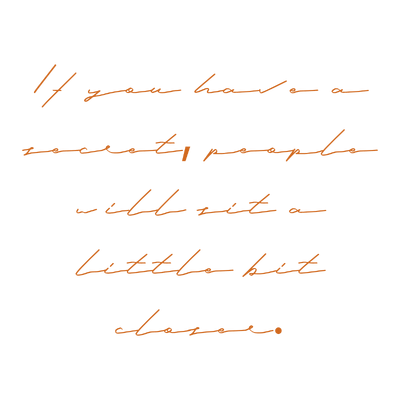 If you have a
secret, people
will sit a
little bit
closer.